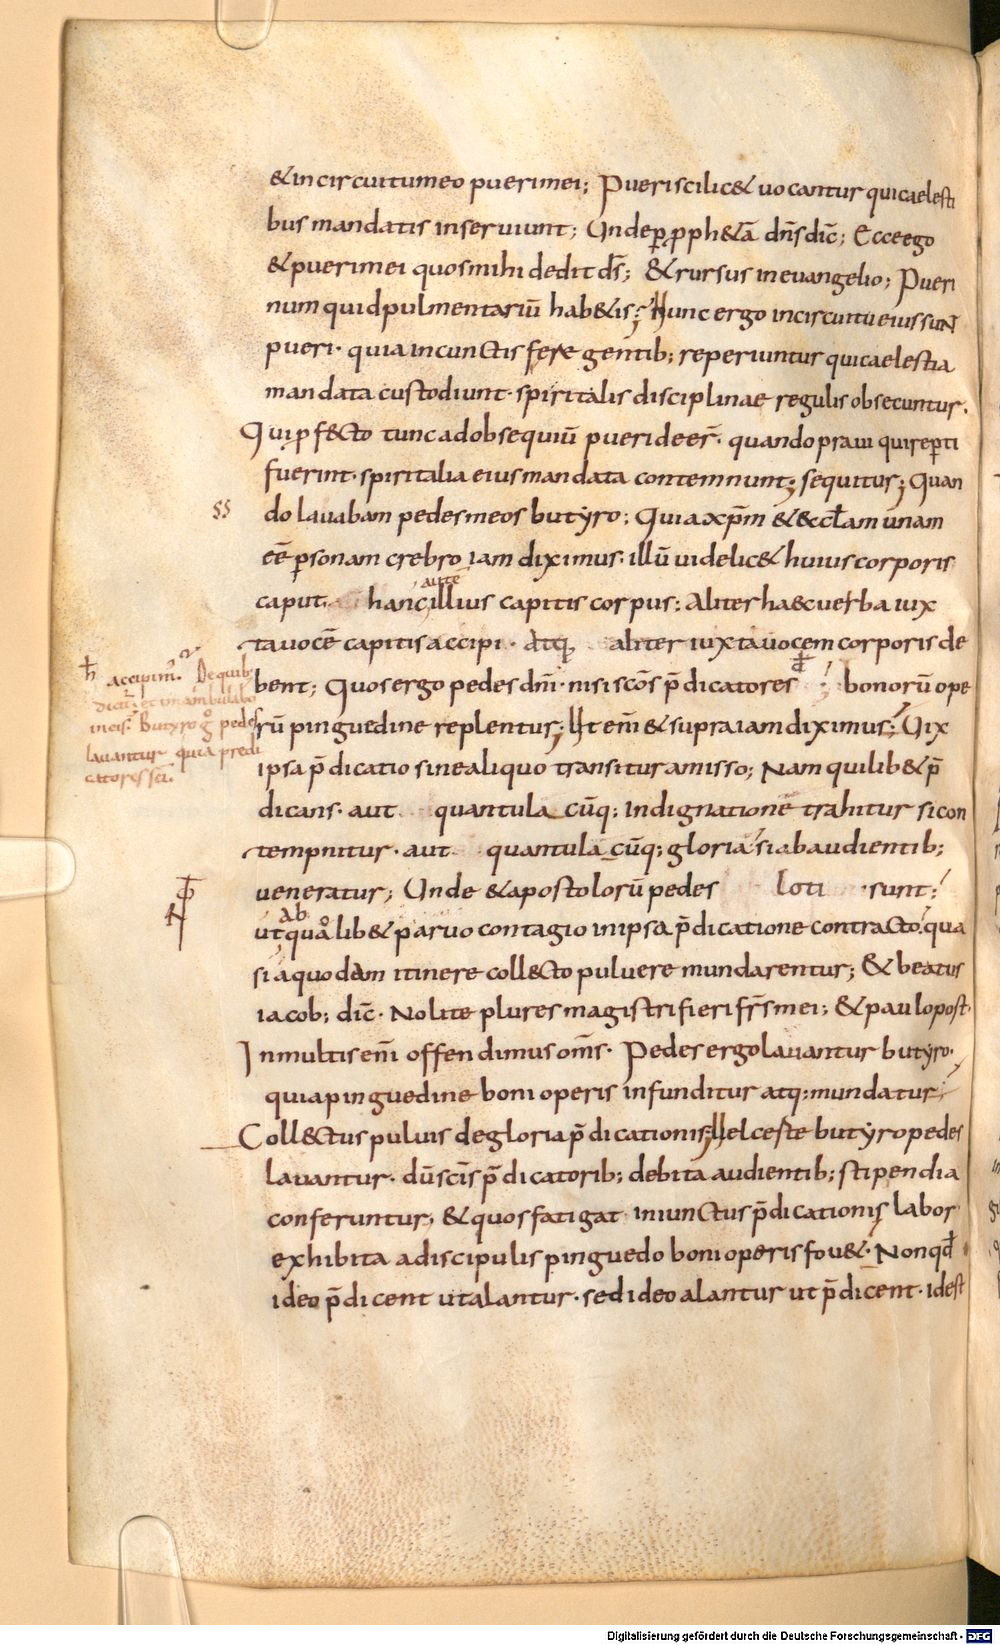 & in circuitu meo pueri mei; Pueri scilic& uocantur qui caelesti
bus mandatis inseruiunt; Unde ꝑ ꝓph&ā dn̄s dic̄; Ecce ego
& pueri mei quos mihi dedit ds̄; & rursus in euangelio; Pueri
num quid pulmentariū hab&is; Nunc ergo in circuitu eius sunt
pueri· quia in cunctis fere gentib; reperiuntur qui caelestia
mandata custodiunt· spiritalis disciplinae regulis obsecuntur.
Qui ꝓf&cto tunc ad obsequiū pueri deer̄· quando praui qui reꝑti
fuerint· spiritalia eius mandata contemnunt; sequitur; Quan
ss
do lauabam pedes meos butyro; Quia xp̄m & &cl̄am unam
eē ꝑsonam crebro iam diximus· illū uidelic& huius corporis
autē
caput hanc illius capitis corpus: Aliter haec uerba iux
ta uocē capitis accipi· atq; aliter iuxta uocem corporis de
ħ accipim̄. De quib
bent; Quos ergo pedes dn̄i· nisi sc̄os p̄dicatores bonorū ope
dict̄; et inambulabo
rū pinguedine replentur; Ut em̄ & supra iam diximus; Uix
in eis. Butyro g̊ pedes
lauantur quia predi
ipsa p̄dicatio sine aliquo transitur amisso; Nam quilib& p̄
catores sc̄i.
dicans· aut quantula cūq; indignatione trahitur si con
tempnitur· aut quantula cūq; gloria si ab audientib;
ueneratur; Unde & apostolorū pedes Loti sunt;
ab
ut quålib& paruo contagio in ipsa p̄dicatione contracto· qua
si a quodam itinere coll&cto puluere mundarentur; & beatus
iacob; dic̄· Nolite plures magistri fieri fr̄s mei; & paulo post·
In multis em̄ offendimus om̄s· Pedes ergo lauantur butyro·
quia pinguedine boni operis infunditur atq; mundatur;
Coll&ctus puluis de gloria p̄dicationis; Uel certe butyro pedes
lauantur· dū sc̄is p̄dicatorib; debita audientib; stipendia
conferuntur; & quos fatigat iniunctus p̄dicationis labor
exhibita a discipulis pinguedo boni operis fou&· Non qd̄
ideo p̄dicent ut alantur· sed ideo alantur ut p̄dicent· idest
Digitalisierung gefördert durch die Deutsche Forschungsgemeinschaft - DFG